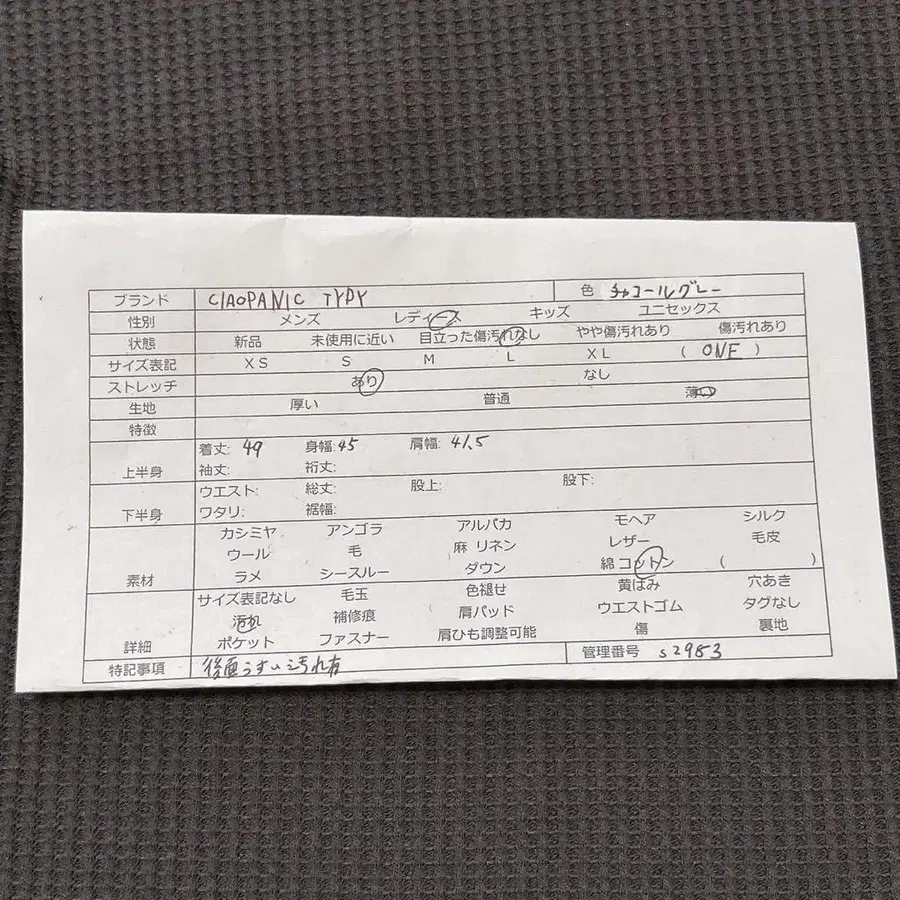 ブランド CIAOPANIC TYPY 色 チャコールグレー
性別 メンズ レディース キッズ ユニセックス
状態 新品 未使用に近い 目立った傷汚れなし やや傷汚れあり 傷汚れあり
サイズ表記 XS S M L XL ( ONE )
ストレッチ あり なし
生地 厚い 普通 薄い
特徴
上半身 着丈: 49 身幅: 45 肩幅: 41.5
袖丈: 裄丈:
下半身 ウエスト: 総丈: 股上: 股下:
ワタリ: 裾幅:
素材 カシミヤ アンゴラ アルパカ モヘア シルク
ウール 毛 麻 リネン レザー 毛皮
ラメ シースルー ダウン 綿 コットン ( )
詳細 サイズ表記なし 毛玉 色褪せ 黄ばみ 穴あき
汚れ 補修痕 肩パッド ウエストゴム タグなし
ポケット ファスナー 肩ひも調整可能 傷 裏地
特記事項 後面うすい汚れ有 管理番号 s2983